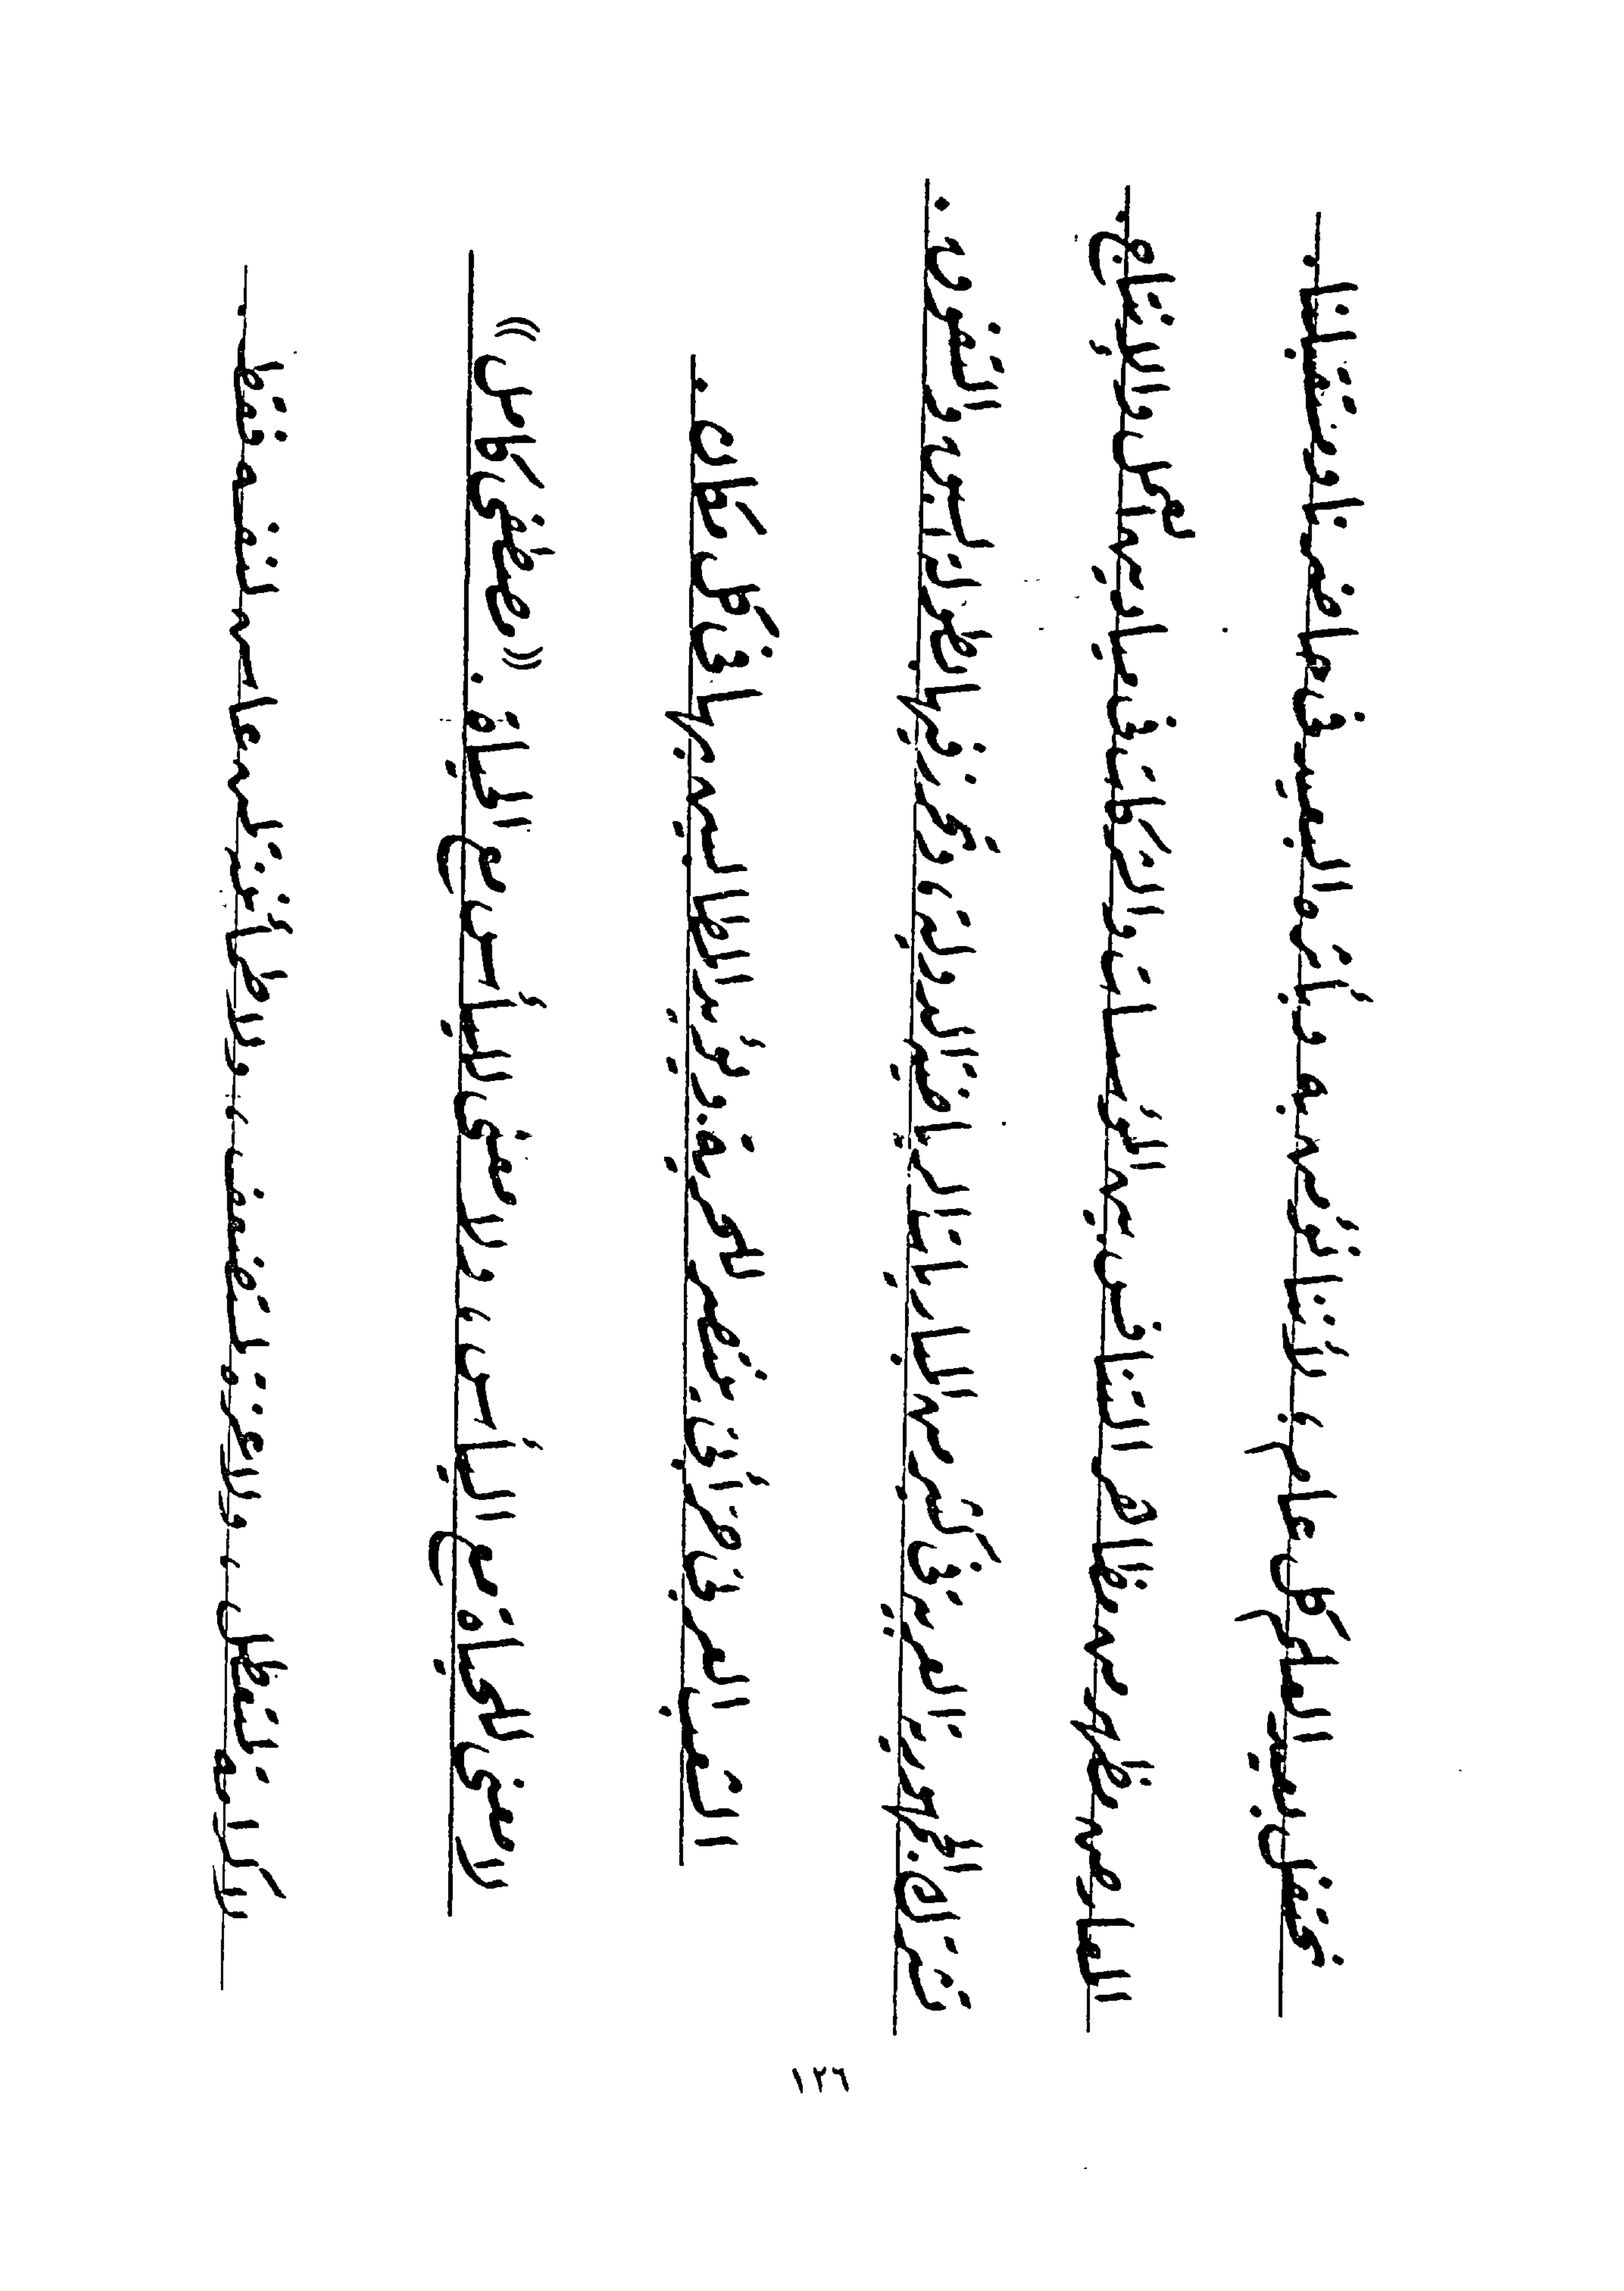 نحتفل بعيد العلم كل عام ، لأننا نؤمن به وبأثره البعيد فى حاضرنا ومستقبلنا .
المعارض مظهر من مظاهر التنافس بين المؤسسات والشركات فى ميادين العمل والإنتاج .
تشترك الجمهورية العربية فى كثير من المباريات الرياضية الدولية ، وتحرز فيها بطولة السبق والتفوق .
الشعب العربى حر أبى ينتصر للحرية . ويؤيد المطالبين بها فى كل مكان .
لا معنى للحياة مع اليأس ، ولا معنى لليأس مع الحياة . «مصطفى كامل»
لا كرامة لمتعطل ، ولا عزة لمستضعف ، ولا طمأنينة لمن عاش لنفسه فقط .
١٢٦